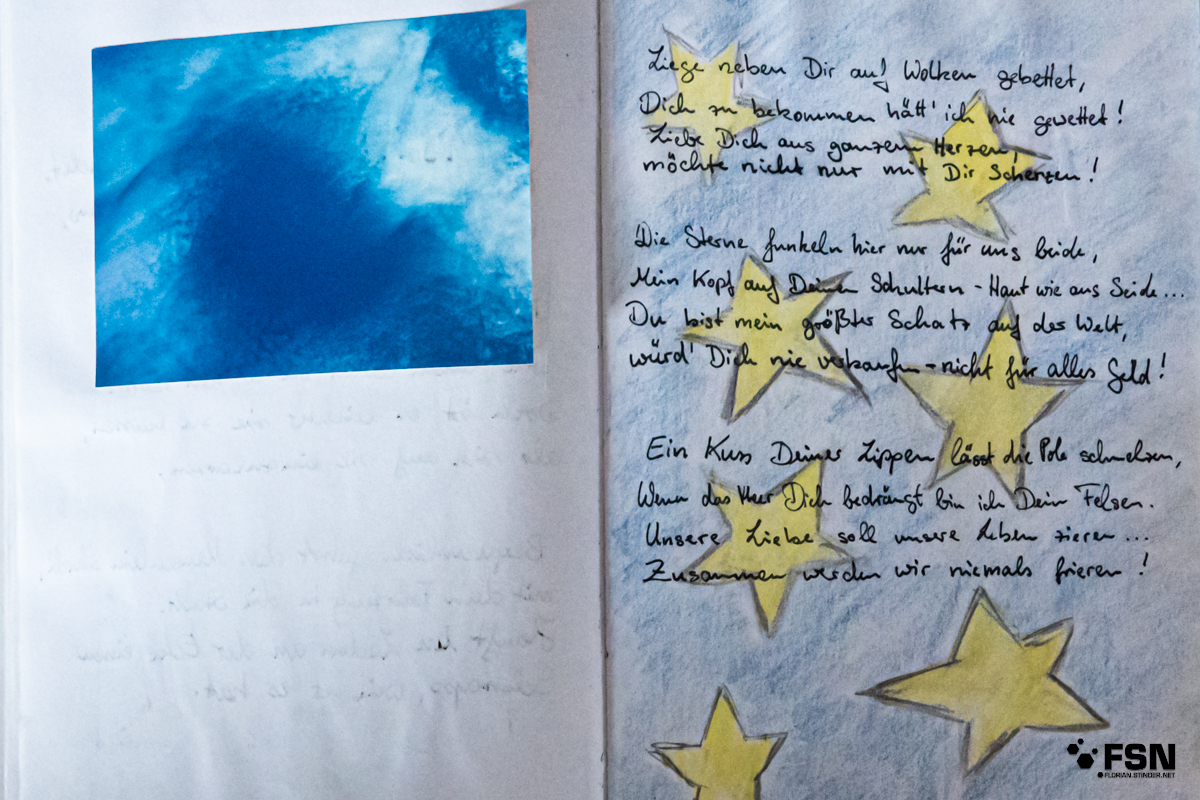 Liege neben Dir auf Wolken gebettet,
Dich zu bekommen hätt' ich nie gewettet!
Liebe Dich aus ganzem Herzen,
möchte nicht nur mit Dir Scherzen!
Die Sterne funkeln hier nur für uns beide,
Mein Kopf auf Deinen Schultern - Haut wie aus Seide...
Du bist mein größter Schatz auf der Welt,
würd' Dich nie verkaufen - nicht für alles Geld!
Ein Kuss Deiner Lippen lässt die Pole schmelzen,
Wenn das Meer Dich bedrängt bin ich Dein Felsen.
Unsere Liebe soll unsere Leben zieren...
Zusammen werden wir niemals frieren!
FSN
FLORIAN.STINDER.NET